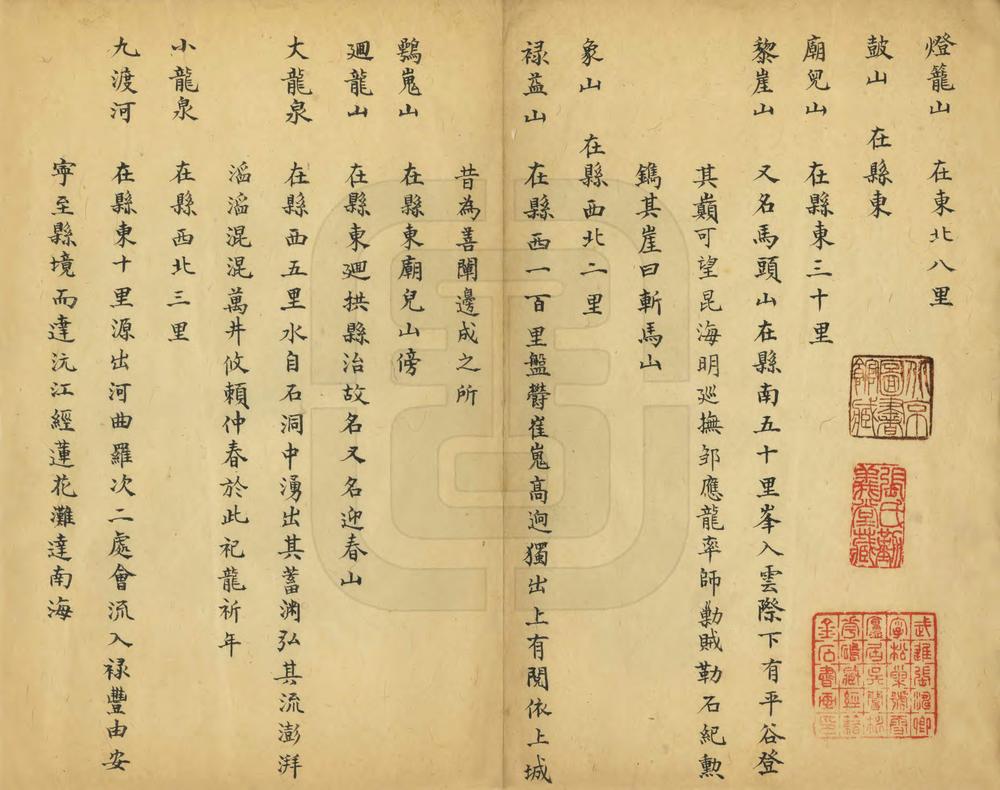 燈籠山　在東北八里
鼓山　在縣東
廟兒山　在縣東三十里
黎崖山　又名馬頭山在縣南五十里峯入雲際下有平谷登
其巔可望昆海明巡撫邹應龍率師勦賊勒石紀勲
鐫其崖曰斬馬山
象山　在縣西北二里
祿益山　在縣西一百里盤欝崔嵬高逈獨出上有閱依上城
昔為善闡邊成之所
鸚嵬山　在縣東廟兒山傍
廻龍山　在縣東廻拱縣治故名又名迎春山
大龍泉　在縣西五里水自石洞中湧出其蓄渊弘其流澎湃
滔滔混混萬井攸賴仲春於此祀龍祈年
小龍泉　在縣西北三里
九渡河　在縣東十里源出河曲羅次二處會流入祿豐由安
寧至縣境而達沅江經蓮花灘達南海
北京圖書館藏
張氏勤義堂藏